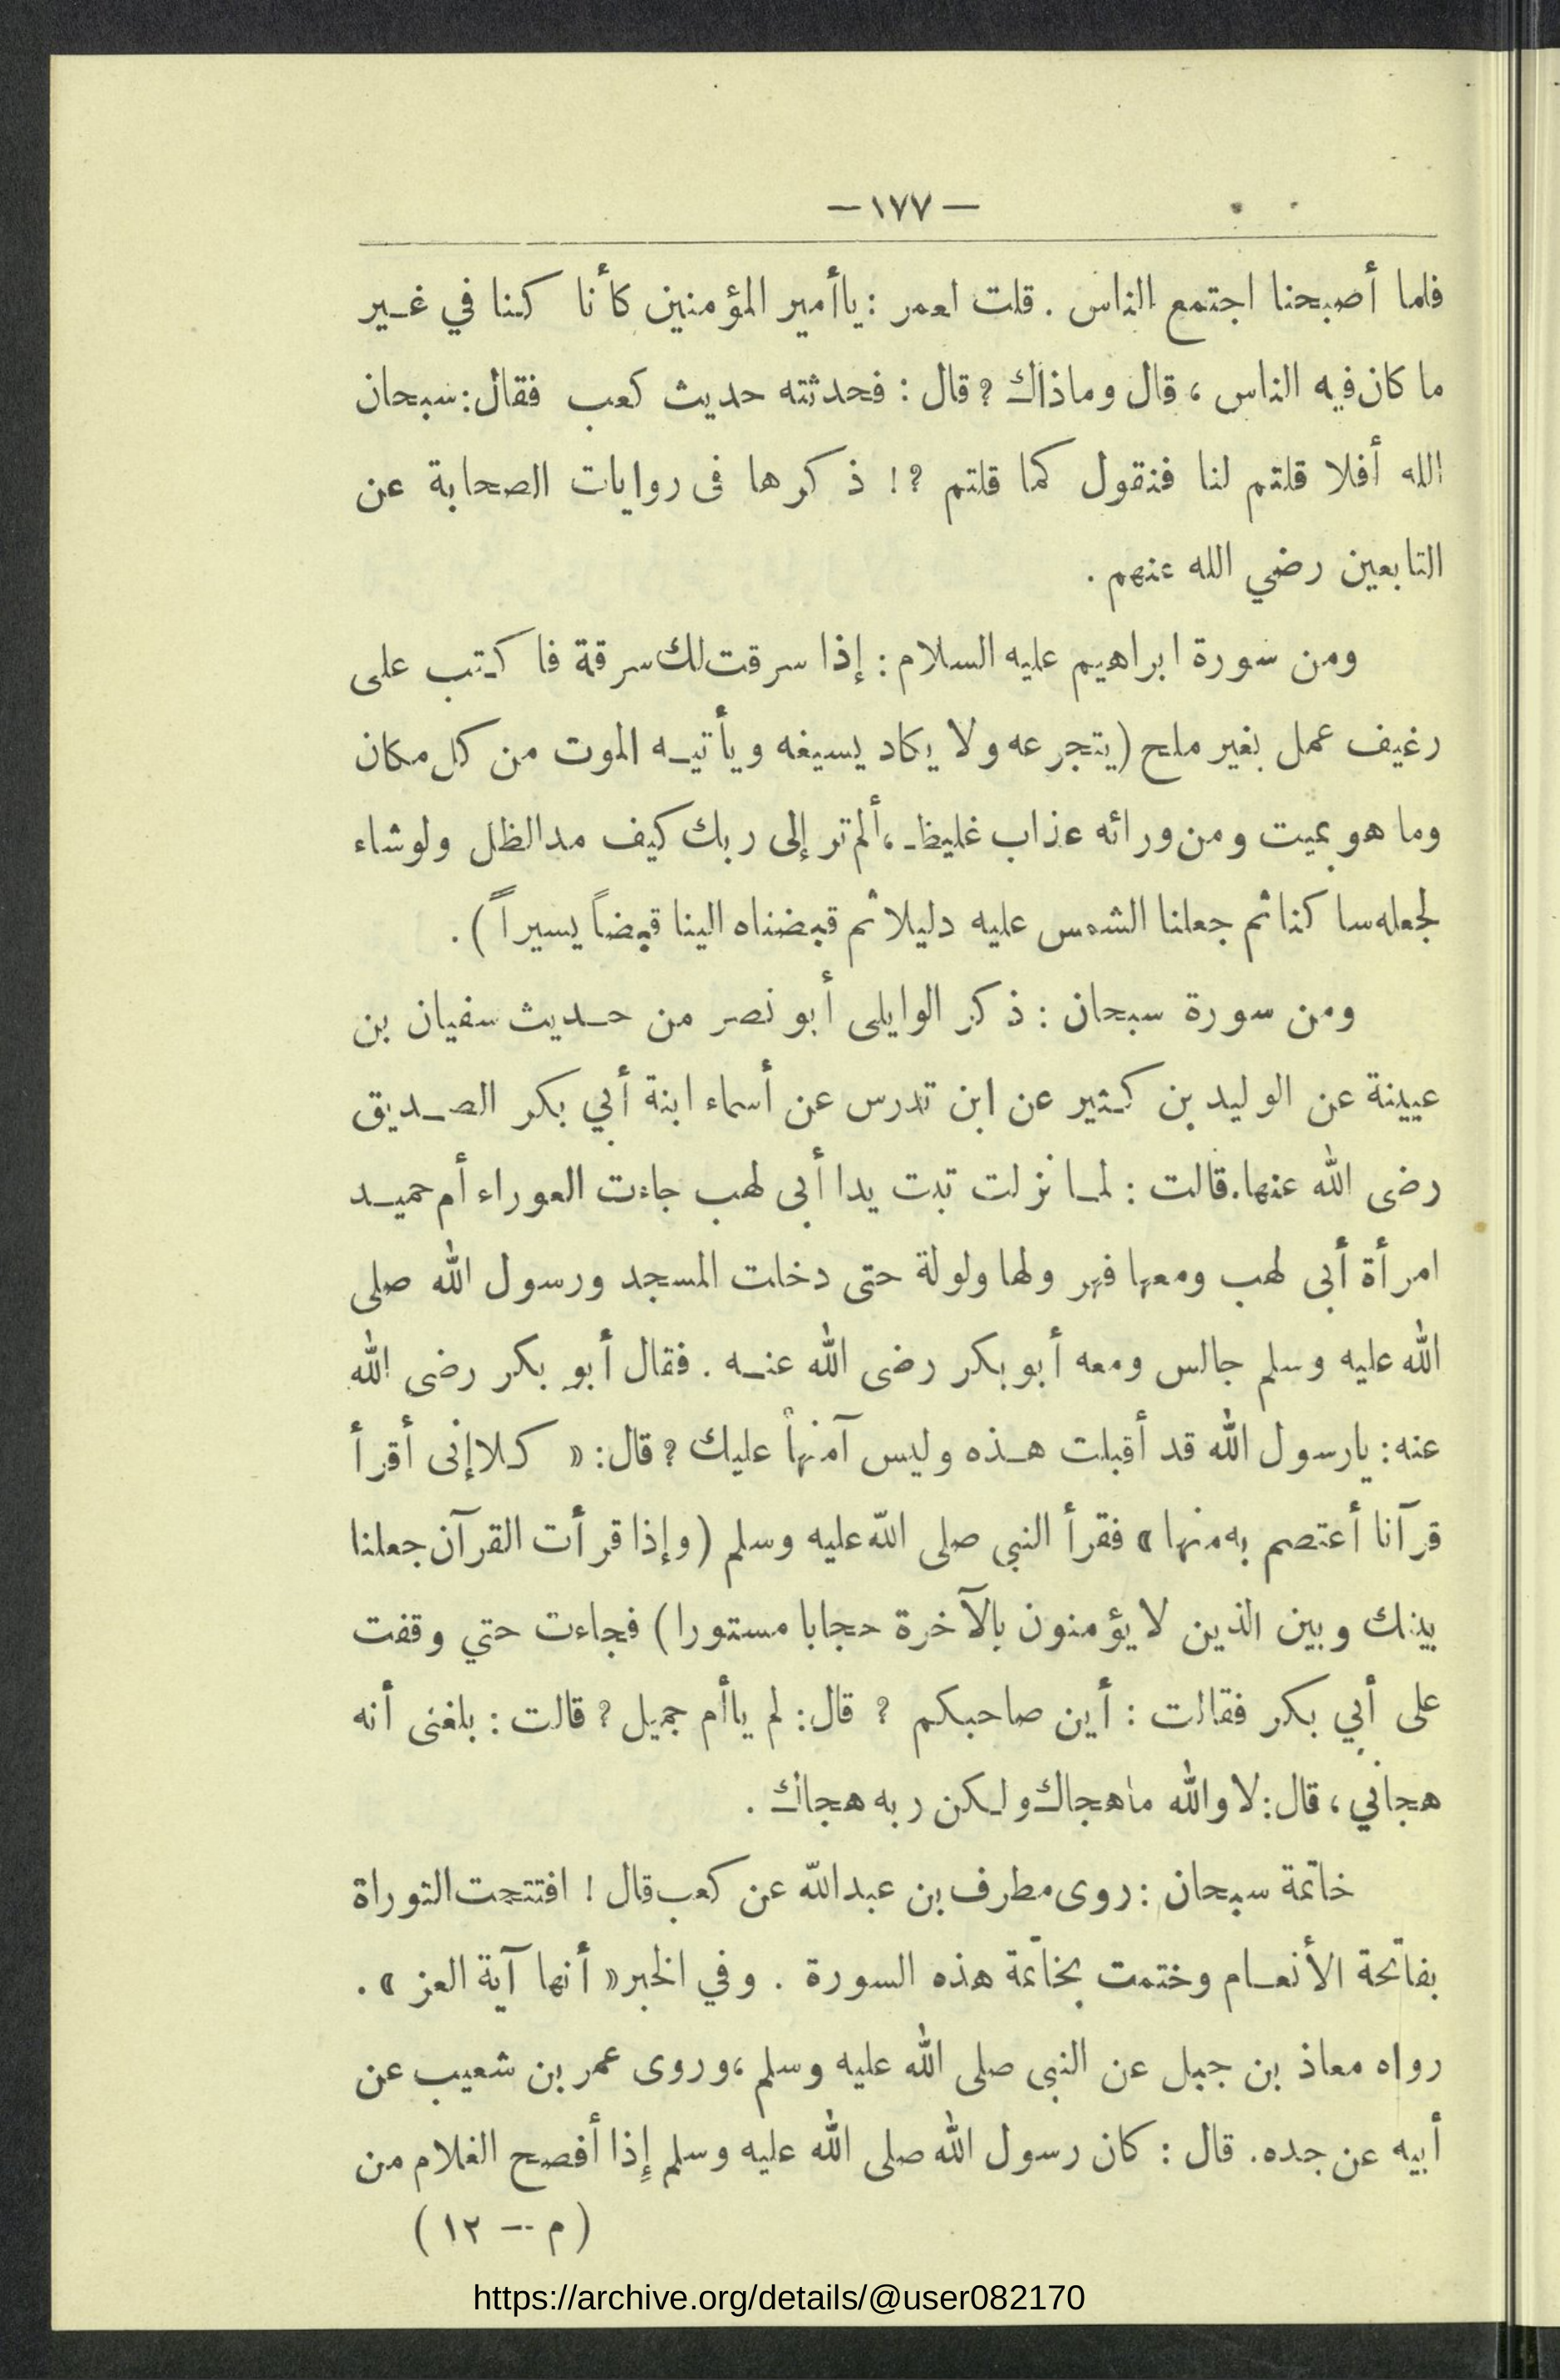 — ١٧٧ —
فلما أصبحنا اجتمع الناس . قلت لعمر : ياأمير المؤمنين كأنا كنا في غير
ما كان فيه الناس ، قال وماذاك ؟ قال : فحدثته حديث كعب فقال : سبحان
الله أفلا قلتم لنا فنقول كما قلتم ؟ ! ذكرها فى روايات الصحابة عن
التابعين رضي الله عنهم .
ومن سورة ابراهيم عليه السلام : إذا سرقت لك سرقة فاكتب على
رغيف عمل بغير ملح ( يتجرعه ولا يكاد يسيغه ويأتيه الموت من كل مكان
وما هو بميت ومن ورائه عذاب غليظ ، ألم تر إلى ربك كيف مد الظل ولو شاء
لجعله ساكنا ثم جعلنا الشمس عليه دليلا ثم قبضناه الينا قبضاً يسيراً ) .
ومن سورة سبحان : ذكر الوايلى أبو نصر من حديث سفيان بن
عيينة عن الوليد بن كثير عن ابن تدرس عن أسماء ابنة أبي بكر الصديق
رضى الله عنها . قالت : لما نزلت تبت يدا أبى لهب جاءت العوراء أم حميد
امرأة أبى لهب ومعها فهر ولها ولولة حتى دخلت المسجد ورسول الله صلى
الله عليه وسلم جالس ومعه أبو بكر رضى الله عنه . فقال أبو بكر رضى الله
عنه : يارسول الله قد أقبلت هذه وليس آمنهاً عليك ؟ قال : « كلا إنى أقرأ
قرآنا أعتصم به منها » فقرأ النبى صلى الله عليه وسلم ( وإذا قرأت القرآن جعلنا
بينك وبين الذين لا يؤمنون بالآخرة حجابا مستورا ) فجاءت حتي وقفت
على أبي بكر فقالت : أين صاحبكم ؟ قال : لم ياأم جميل ؟ قالت : بلغنى أنه
هجاني ، قال : لا والله ماهجاك ولكن ربه هجاك .
خاتمة سبحان : روى مطرف بن عبد الله عن كعب قال ! افتتحت التوراة
بفاتحة الأنعام وختمت بخاتمة هذه السورة . وفي الخبر « أنها آية العز » .
رواه معاذ بن جبل عن النبى صلى الله عليه وسلم ، وروى عمر بن شعيب عن
أبيه عن جده . قال : كان رسول الله صلى الله عليه وسلم إذا أفصح الغلام من
( م — ١٢ )
https://archive.org/details/@user082170